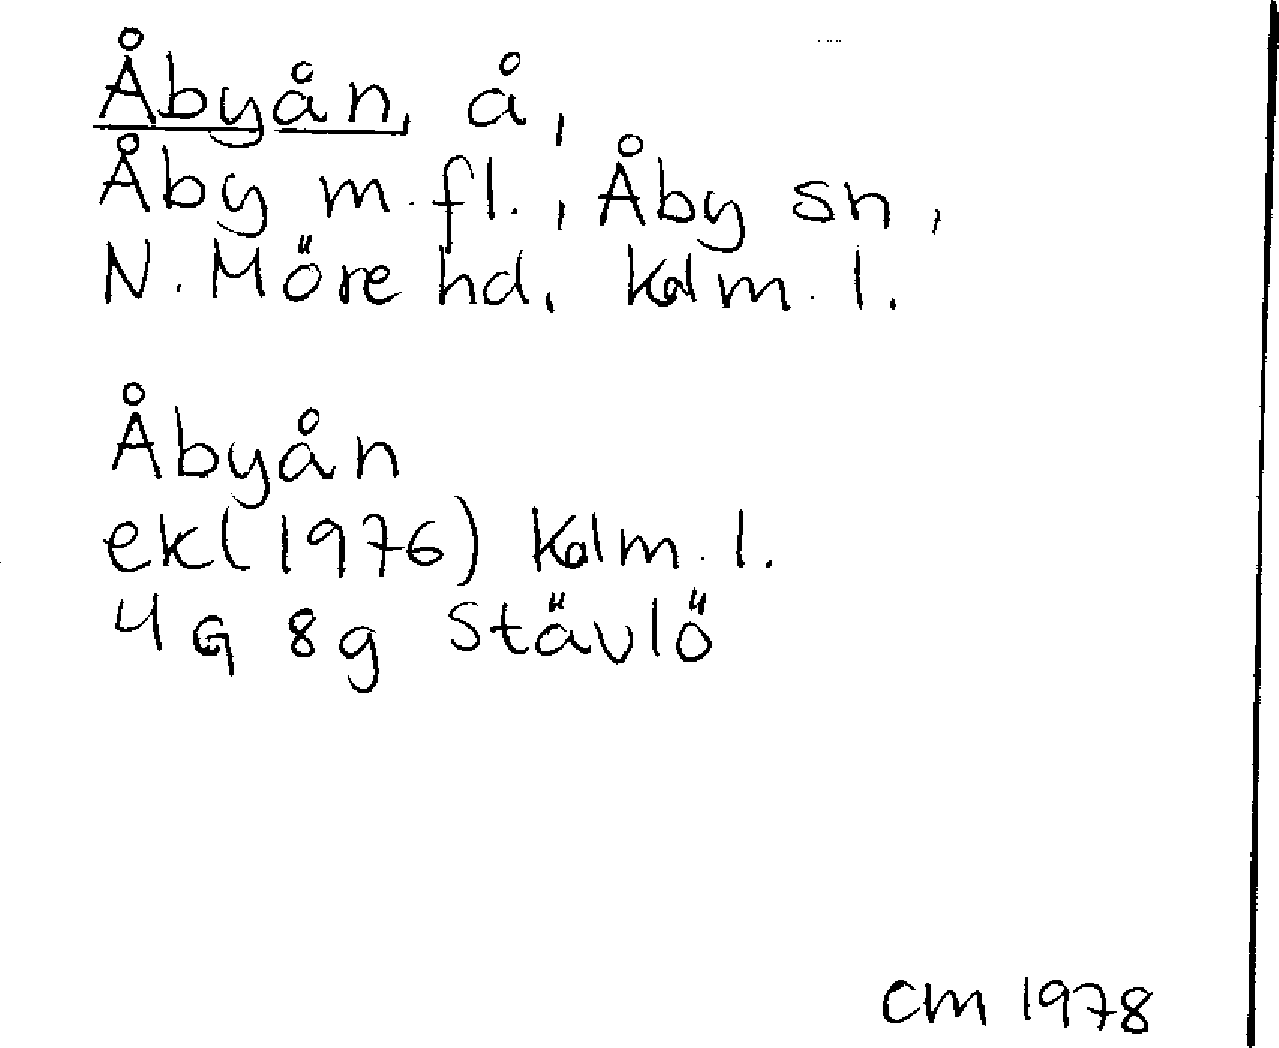 Åbyån, å,
Åby m.fl., Åby sn,
N. Möre hd, Kalm. l.
Åbyån
ek(1976) Kalm. l.
4G 8g Stävlö
CM 1978